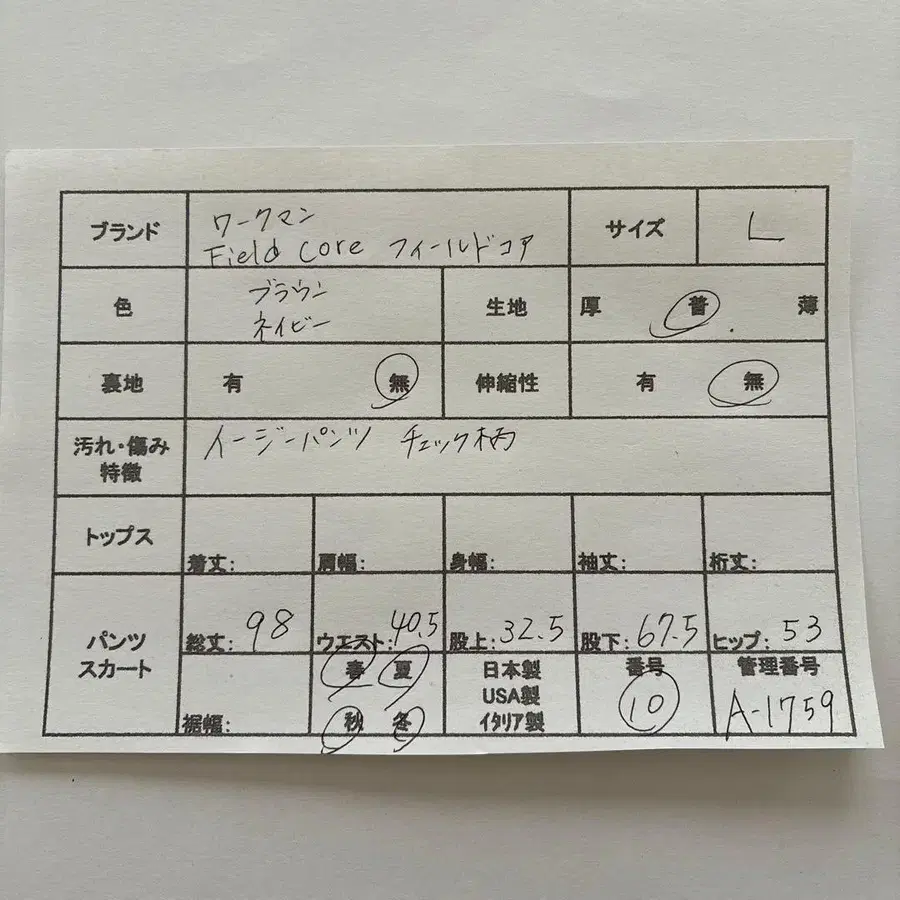 ブランド ワークマン サイズ L
Field Core フィールドコア
色 ブラウン 生地 厚 普 薄
ネイビー
裏地 有 無 伸縮性 有 無
汚れ・傷み イージーパンツ チェック柄
特徴
トップス 着丈: 肩幅: 身幅: 袖丈: 裄丈:
パンツ 総丈: 98 ウエスト: 40.5 股上: 32.5 股下: 67.5 ヒップ: 53
スカート 春 夏 日本製 番号 管理番号
USA製
裾幅: 秋 冬 イタリア製 10 A-1759